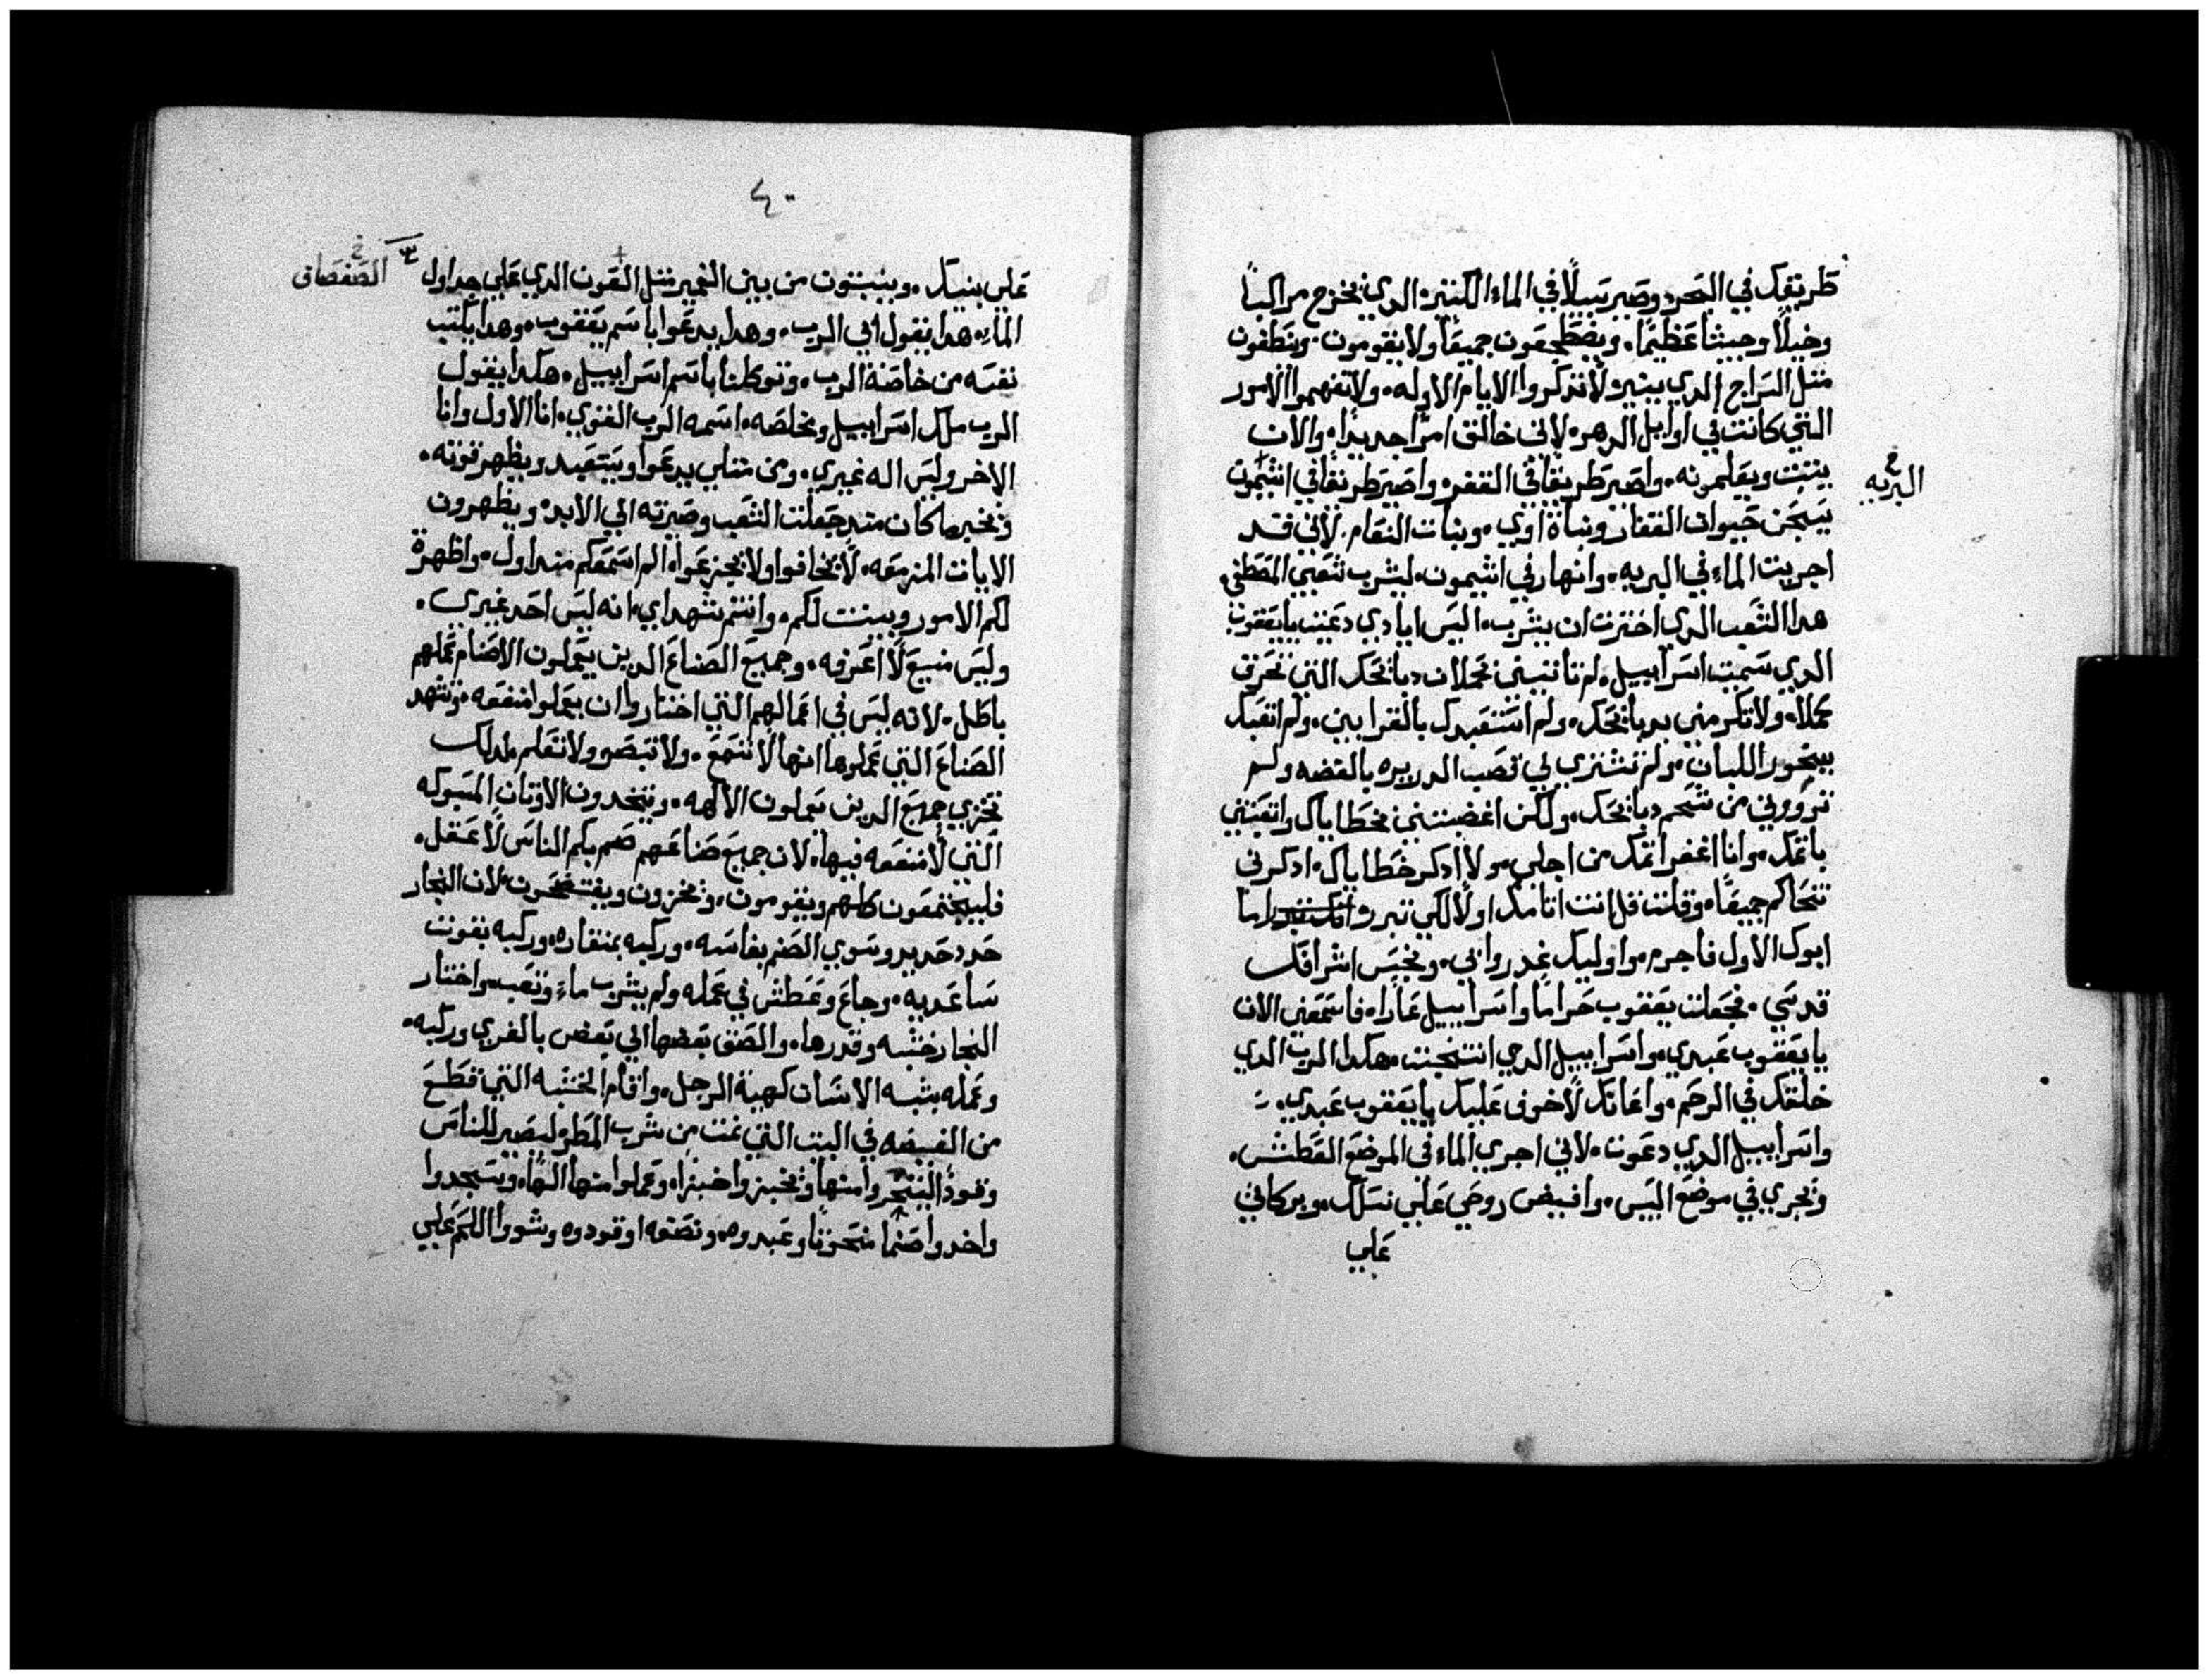 طريقك في البحر وصير سبيلًا في الماء الكثيره الدي يخرج مراكبًا
وخيلًا وجيشا عظيمًا. ويضطجعون جميعًا ولا يقومون. وينطفون
مثل السراج الدي ينير لا تدكروا الايام الاوله. ولا تفهموا الامور
التي كانت في اوايل الدهر. لاني خالق امرًا جديدًا. والان
ينبت ويعلمونه. واصير طريقًا في القفر واصير طريقًا في اشيمون
البريه
يسبحن حيوان القفار وبناة اوي. وبنات النعام. لاني قد
اجريت الماء في البريه. وانهار في اشيمون. ليشرب شعبي المصطفي.
هدا الشعب الدي اخترت ان يشرب. اليس ايادي دعيت يا يعقوب
الدي سميت اسراييل. لم تاتيني بحملان دبايحك التي تحرق
كملًا. ولا تكرمني بدبايحك. ولم استعبدك بالقرابين. ولم اتعبك
ببخور اللبان. ولم تشتري لي قصب الدريره بالفضه ولم
تروويني من شحم دبايحك. ولكن اغضبتني بخطاياك واتعبتني
باثمك. وانا اغفر اثمك من اجلي. ولا ادكر خطاياك. ادكرني
نتحاكم جميعًا. وقلت قل انت اثامك اولًا لكي تبرر اما
ابوك الاول فاجرم. واوليك غدروا بي. ونجس اشرافك
قدسي. فجعلت يعقوب حرامًا واسراييل عارًا. فاسمعني الان
يا يعقوب عبدي. واسراييل الدي انتخبت. هكدا الرب الدي
خلقك في الرحم. واعانك لا خوف عليك يا يعقوب عبدي.
واسراييل الدي دعوت. لاني اجري الماء في الموضع العطش.
وتجري في موضع اليبس. وافيض روحي علي نسلك. وبركاتي
علي
٤٠
علي بنيك. وينبتون من بين الغمير مثل القرن الدي علي جداول
الصفصاف
الماء. هدا يقول اني الرب. وهدا يدعوا باسم يعقوب. وهدا يكتب
نفسه من خاصة الرب. وتوكلنا باسم اسراييل. هكدا يقول
الرب ملك اسراييل ومخلصه. اسمه الرب القوي. انا الاول وانا
الاخر وليس اله غيري. ومن مثلي يدعوا ويستعبد ويظهر قوته.
ويخبر ما كان مند جعلت الشعب وصيرته الي الابد. ويظهرون
الايات المزمعه. لا تخافوا ولا تجزعوا. الم اسمعكم مند اول. واظهرة
لكم الامور وبينت لكم. وانتم شهداي. انه ليس احد غيري.
وليس منيع لا اعرفه. وجميع الصناع الدين يعملون الاصنام عملهم
باطل. لانه ليس في اعمالهم التي اختاروا ان يعملوا منفعه. وتشهد
الصناع التي عملوها انها لا تسمع. ولا تبصر ولا تعلم. لدلك
تخزي جميع الدين يعملون الالهه. ويتخدون الاوتان المسبوكه
التي لا منفعه فيها. لان جميع صناعهم صم بكم الناس لا عقل.
فليجتمعون كلهم ويقومون. ويخزون ويفتضحون. لان النجار
حدد حديد وسوي الصنم بفاسه. وركبه بمنقاره. وركبه بقوت
ساعديه. وجاع وعطش في عمله ولم يشرب ماء وتعب. واختار
النجار خشبه وقدرها. والصق بعضها الي بعض بالغري وركبه.
وعمله بشبه الانسان كهية الرجل. واقام الخشبه التي قطع
من الغيضه في البيت التي نمت من شرب المطر ليصير للناس
وقودًا ليسجروا منها ويخبزوا خبزًا. وعملوا منها الهًا. ويسجدوا
واخدوا صنمًا منحوتًا وعبدوه. ونصفه اوقدوه وشووا اللحم علي